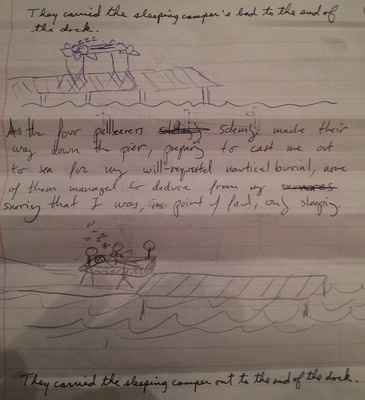 They carried the sleeping camper's bed to the end of
the dock.
zzz
As the four pallbearers solemly solemnly made their
way down the pier, preparing to cast me out
to sea for my will-requested nautical burial, none
of them managed to deduce from my snores
snoring that I was, in point of fact, only sleeping.
They carried the sleeping camper out to the end of the dock.